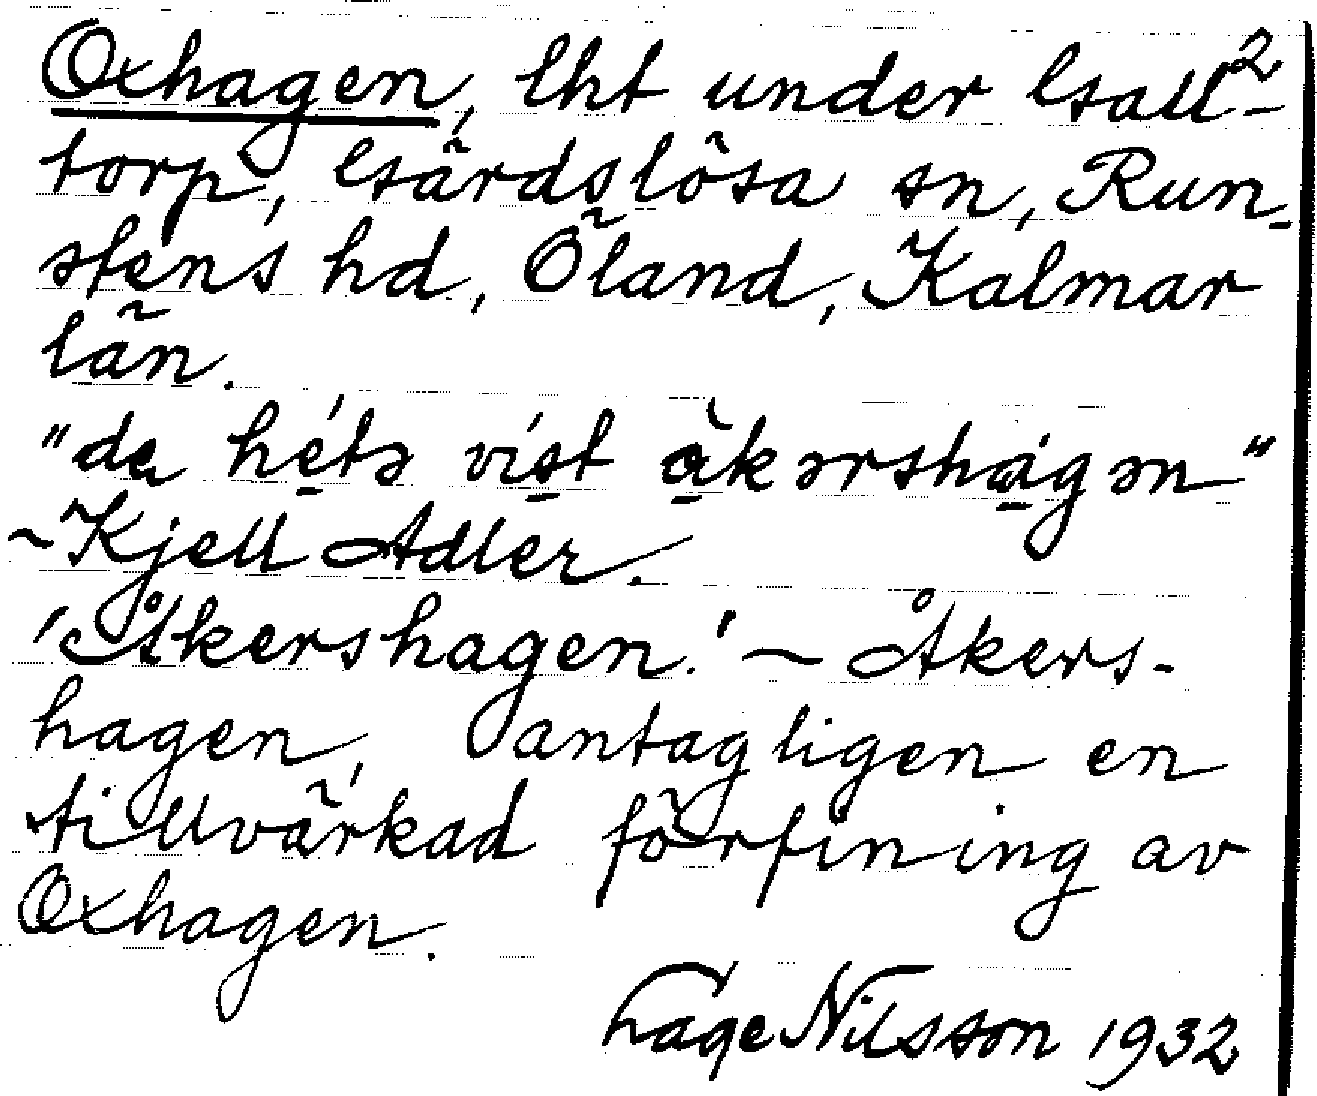 Oxhagen, lht under Gsall²-
torp, Gsärdslösa sn, Run-
stens hd, Öland, Kalmar
län.
"da hétə víst àkərshágən"
~ Kjell Adler.
'Åkershagen.' ~ Åkers-
hagen, antagligen en
tillvärkad förfining av
Oxhagen.
Lage Nilsson 1932